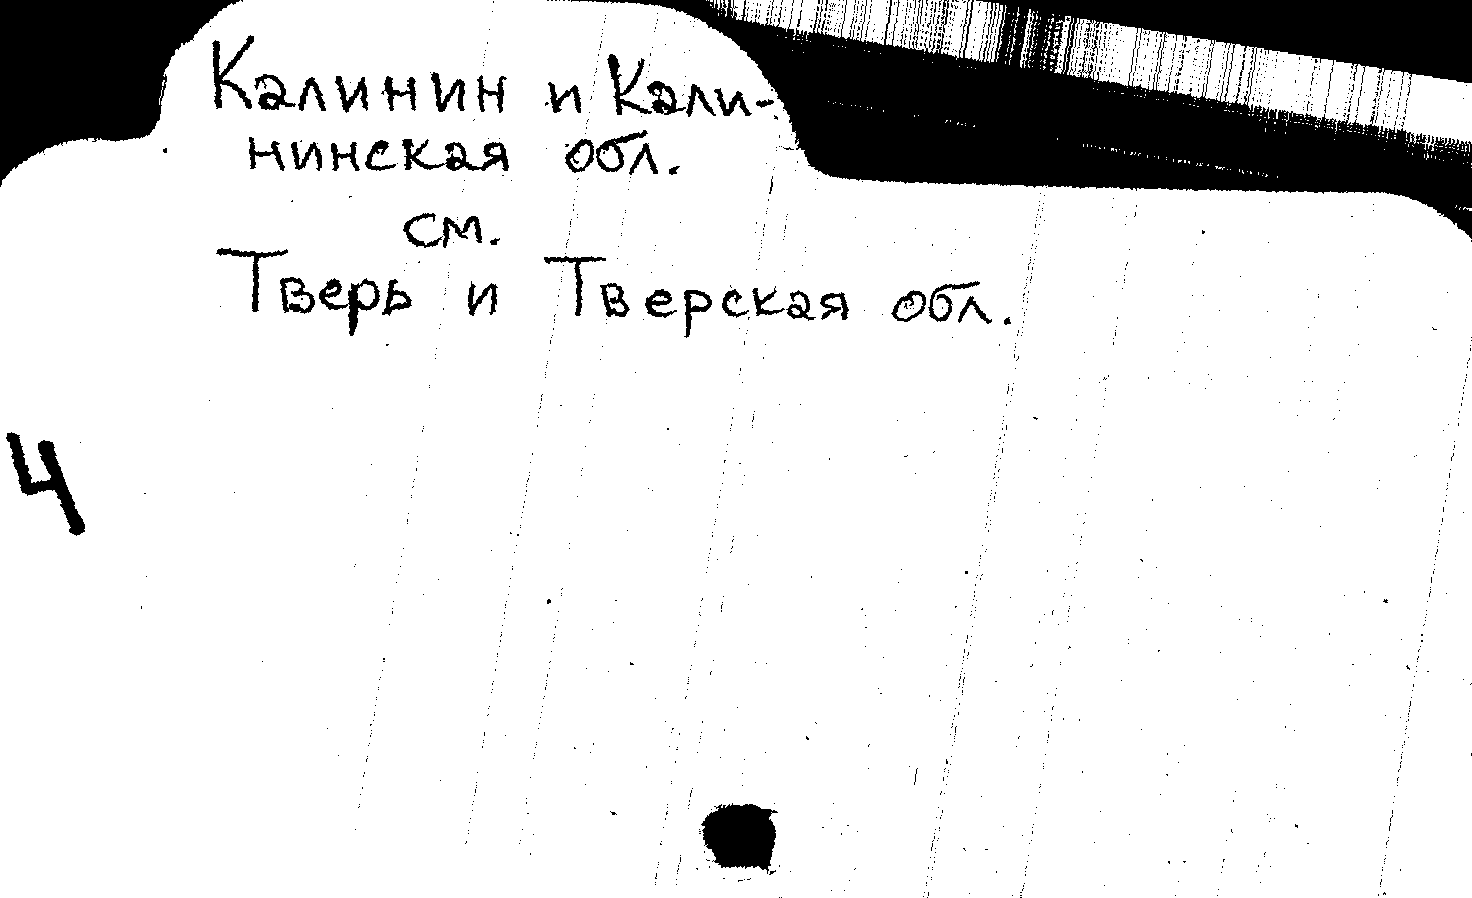 Калинин и Кали-
нинская обл.
см.
Тверь и Тверская обл.
4